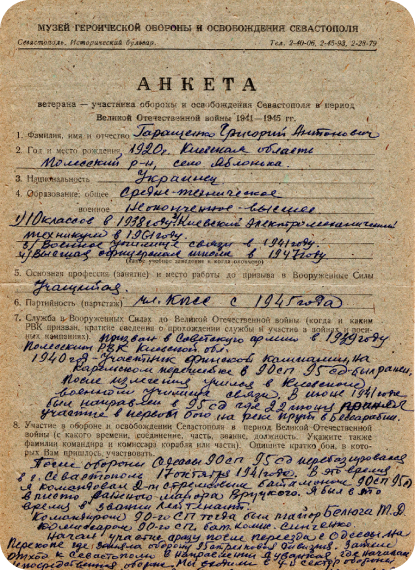 МУЗЕЙ ГЕРОИЧЕСКОЙ ОБОРОНЫ И ОСВОБОЖДЕНИЯ СЕВАСТОПОЛЯ
Севастополь, Исторический бульвар. Тел. 2-40-06, 2-45-93, 2-28-79
АНКЕТА
ветерана — участника обороны и освобождения Севастополя в период
Великой Отечественной войны 1941—1945 гг.
1. Фамилия, имя и отчество Таращенко Григорий Антонович
2. Год и место рождения 1920г. Киевская область
р-н, село Яблонка.
3. Национальность Украинец
4. Образование: общее Средне-техническое
военное Неоконченное-высшее
1) 10 классов в 1938 году, Киевский Электромеханический
техникум в 1961 году.
3) Военное училище связи в 1941 году.
4) Высшая офицерская школа в 1947 году
5. Основная профессия (занятие) и место работы до призыва в Вооруженные Силы
Учащийся
6. Партийность (партстаж) чл. КПСС с 1945 года
7. Служба в Вооруженных Силах до Великой Отечественной войны (когда и каким
РВК призван, краткие сведения о прохождении службы и участие в войнах и воен-
ных кампаниях). Призван в Советскую армию в 1939 году
РВК Киевской обл.
1940-Участник финской кампании, на
Карельском перешейке в 90 СП 95 СД. был ранен,
После излечения учился в Киевском
военном училище связи. В июне 1941 года
был направлен в 95 СД где 22 июня принял
участие в первом бою на реке Прут в Бессарабии.
8. Участие в обороне и освобождении Севастополя в период Великой Отечественной
войны (с какого времени, соединение, часть, звание, должность. Укажите также
фамилии командира и комиссара корабля или части). Опишите кратко бои, в кото-
рых Вам пришлось участвовать.
После обороны Одессы 90 СП 95 СД перебазировался
в г. Севастополь октября 1941 года. В это время
я командовал 2-м стрелковым батальоном 90 СП 95 СД
в место майора Вруцкого. Я был в это
время в звании лейтенант.
Командиром 90-го СП тогда был майор Белюга Т.Д.
Комиссаром 90-го СП бат. комис. Синченко.
Начал участие сразу после переезда с Одессы на
Перекоп где заняла оборону дивизия. Затем
отход к Севастополю в направлении Дуванкой где началась
непосредственная оборона. Мы в 4-й сектор обороны